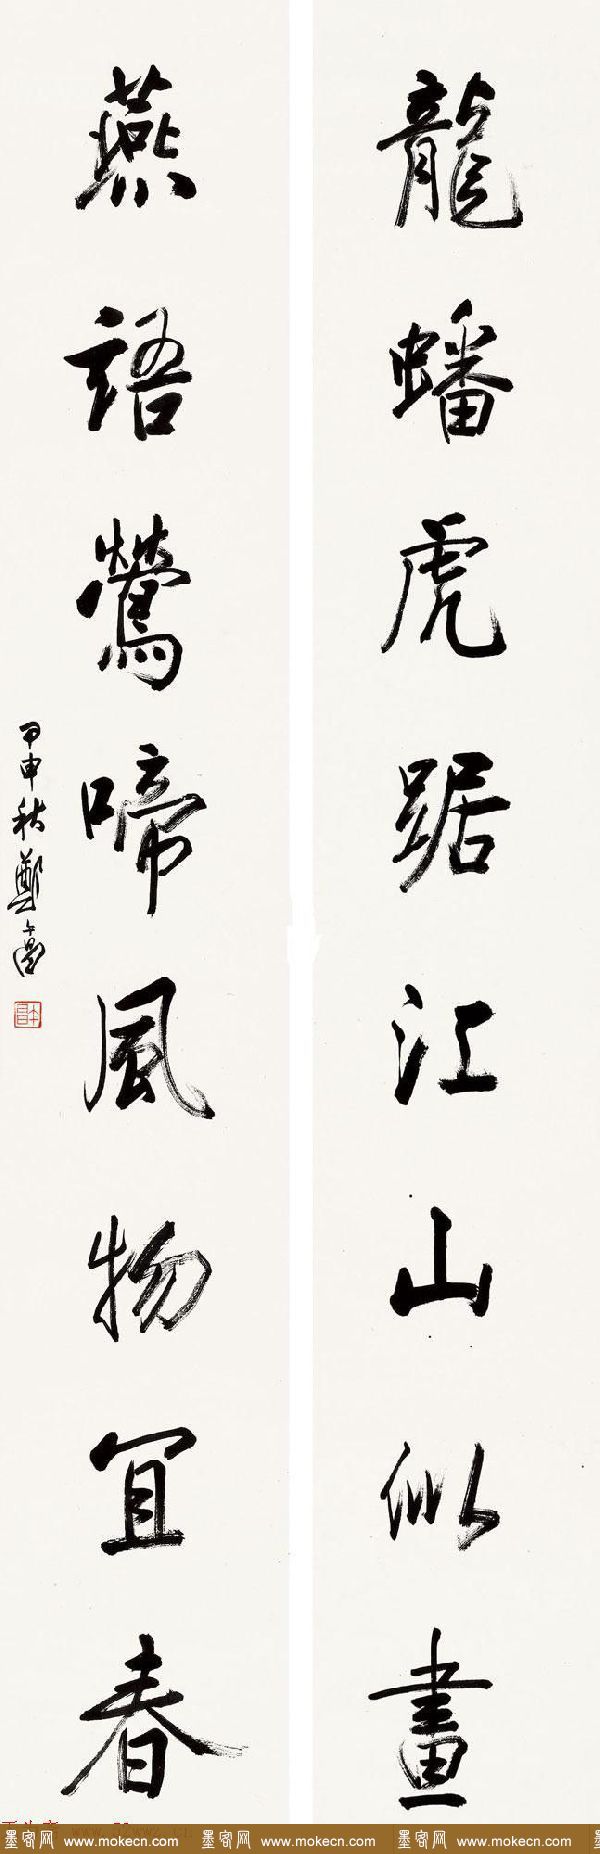 龍蟠虎踞江山似畫
燕語鶯啼風物宜春
甲申秋鄭午昌
午昌
墨客网 www.mokecn.com 墨客网 www.mokecn.com 墨客网 www.mokecn.com